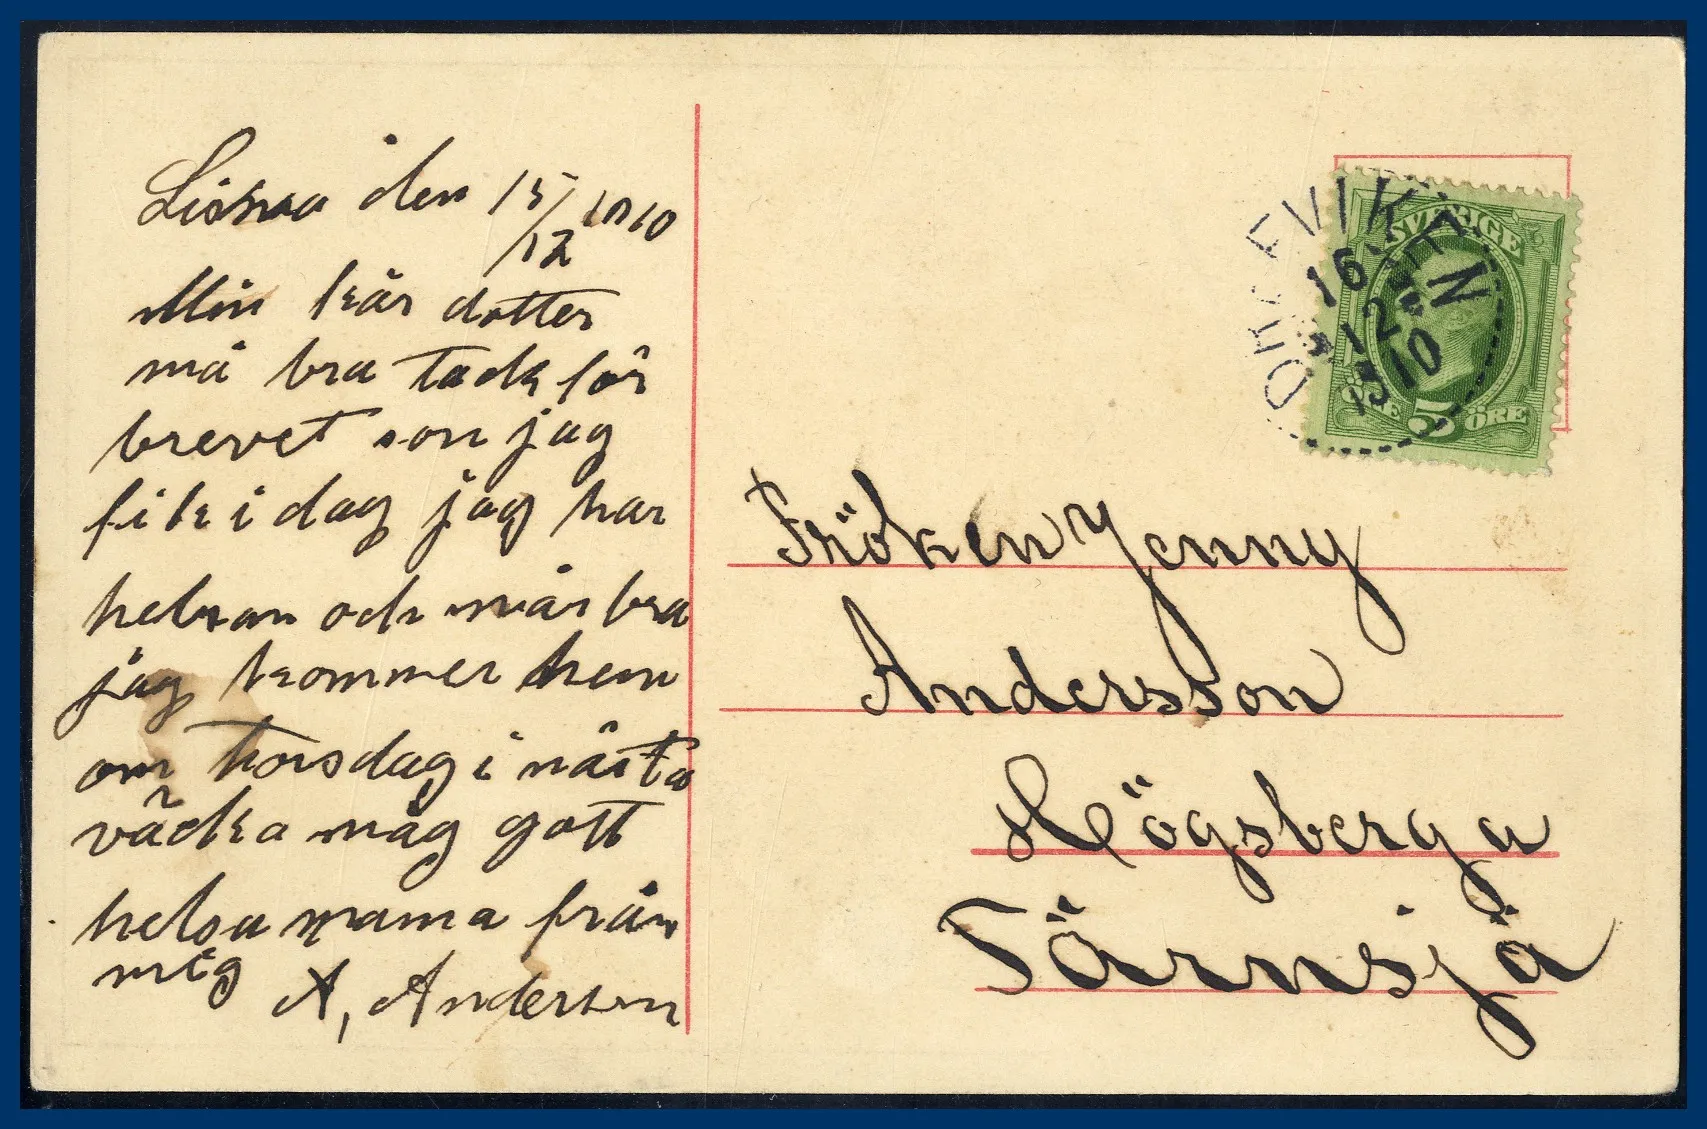 den 15/12 1910
Min kär dotter
må bra tack för
brevet som jag
fik i dag jag har
helsan och mår bra
jag kommer hem
om torsdag i nästa
väcka måg gott
helsa mama från
mig A, Anderson
Fröken Jenny
Andersson
Högsberga
Tärnsjö
SVERIGE
16
12
1910
ÖRE 5 ÖRE